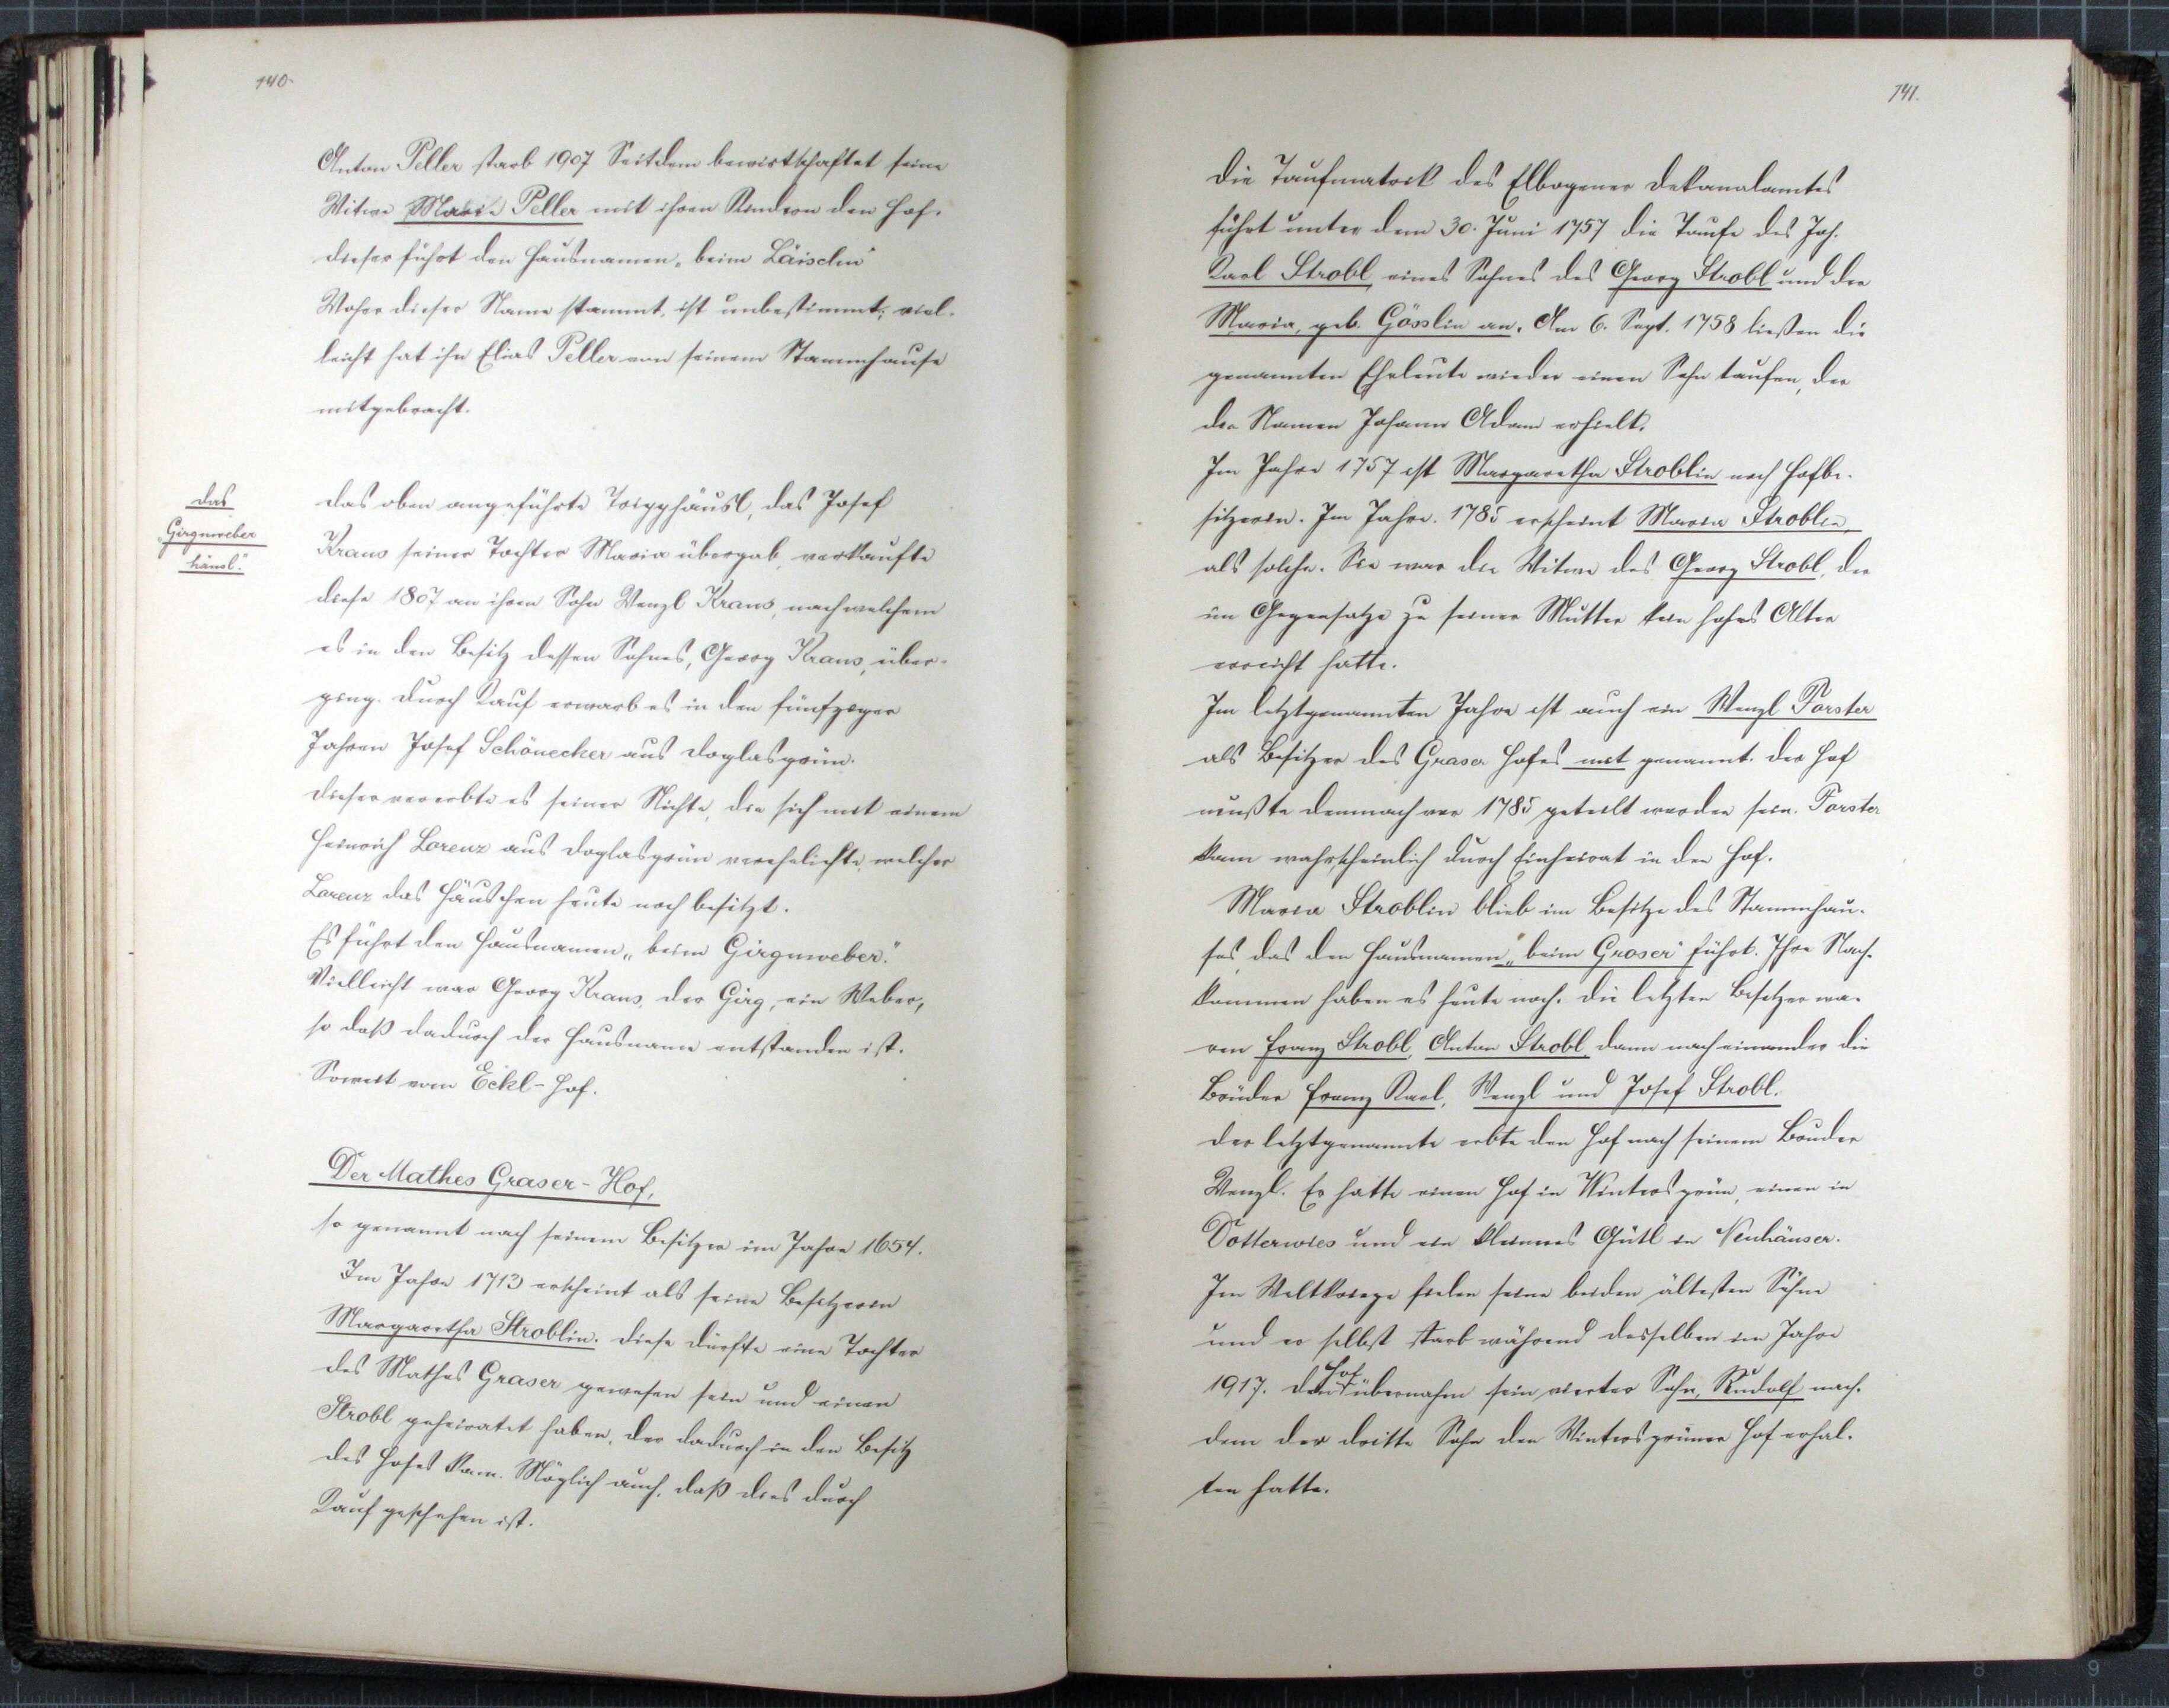 140.
Anton Peller starb 1907 Seitdem bewirtschaftet seine
Witwe Marie Peller mit ihren Kindern den Hof.
Dieser führt den Hausnamen „beim Läischn“
Woher dieser Name stammt, ist unbestimmt; viel-
leicht hat ihn Elias Peller von seinem Stammhause
mitgebracht.
Das
„Girgnweber
häusl.“
Das oben angeführte Tripphäusl, das Josef
Kraus seiner Tochter Maria übergab, verkaufte
diese 1807 an ihren Sohn Wenzl Kraus, nach welchem
es in den Besitz dessen Sohnes, Georg Kraus, über-
ging. Durch Kauf erwarb es in den fünfziger
Jahren Josef Schönecker aus Doglasgrün.
Dieser vererbte es seiner Nichte, die sich mit einem
Heinrich Lorenz aus Doglasgrün verehelichte, welcher
Lorenz das Häuschen heute noch besitzt.
Es führt den Hausnamen „beim Girgnweber.“
Vielleicht war Georg Kraus, der Girg, ein Weber,
so daß dadurch der Hausname entstanden ist.
Soweit vom Eckl-Hof.
Der Mathes Graser-Hof,
so genannt nach seinem Besitzer im Jahre 1654.
Im Jahre 1713 erscheint als seine Besitzerin
Margaretha Stroblin. Diese dürfte eine Tochter
des Mathes Graser gewesen sein und einen
Strobl geheiratet haben, der dadurch in den Besitz
des Hofes kam. Möglich auch, daß dies durch
Kauf geschehen ist.
141.
Die Taufmatrik des Elbogener Dekanalamtes
führt unter dem 30. Juni 1757 die Taufe des Joh.
Karl Strobl, eines Sohnes des Georg Strobl und der
Maria, geb. Gösslin an. Am 6. Sept. 1758 ließen die
genannten Eheleute wieder einen Sohn taufen, der
den Namen Johann Adam erhielt.
Im Jahre 1757 ist Margaretha Stroblin noch Hofbe-
sitzerin. Im Jahre 1785 erscheint Maria Stroblin
als solche. Sie war die Witwe des Georg Strobl, der
im Gegensatze zu seiner Mutter kein hohes Alter
erreicht hatte.
Im letztgenannten Jahre ist auch ein Wenzl Porster
als Besitzer des Graser Hofes mit genannt. Der Hof
mußte demnach vor 1785 geteilt worden sein. Porster
kam wahrscheinlich durch Einheirat in den Hof.
Maria Stroblin blieb im Besitze des Stammhau-
ses, das den Hausnamen „beim Groser“ führt. Ihre Nach-
kommen haben es heute noch. Die letzten Besitzer wa-
ren Franz Strobl, Anton Strobl, dann nach einander die
Brüder Franz Karl, Wenzl und Josef Strobl.
Der letztgenannte erbte den Hof nach seinem Bruder
Wenzl. Er hatte einen Hof in Wintersgrün, einen in
Dotterwies und ein kleines Gütl in Neuhäuser.
Im Weltkriege fielen seine beiden ältesten Söhne
und er selbst starb während desselben im Jahre
1917. Den Hof übernahm sein vierter Sohn, Rudolf nach-
dem der dritte Sohn den Wintersgrüner Hof erhal-
ten hatte.